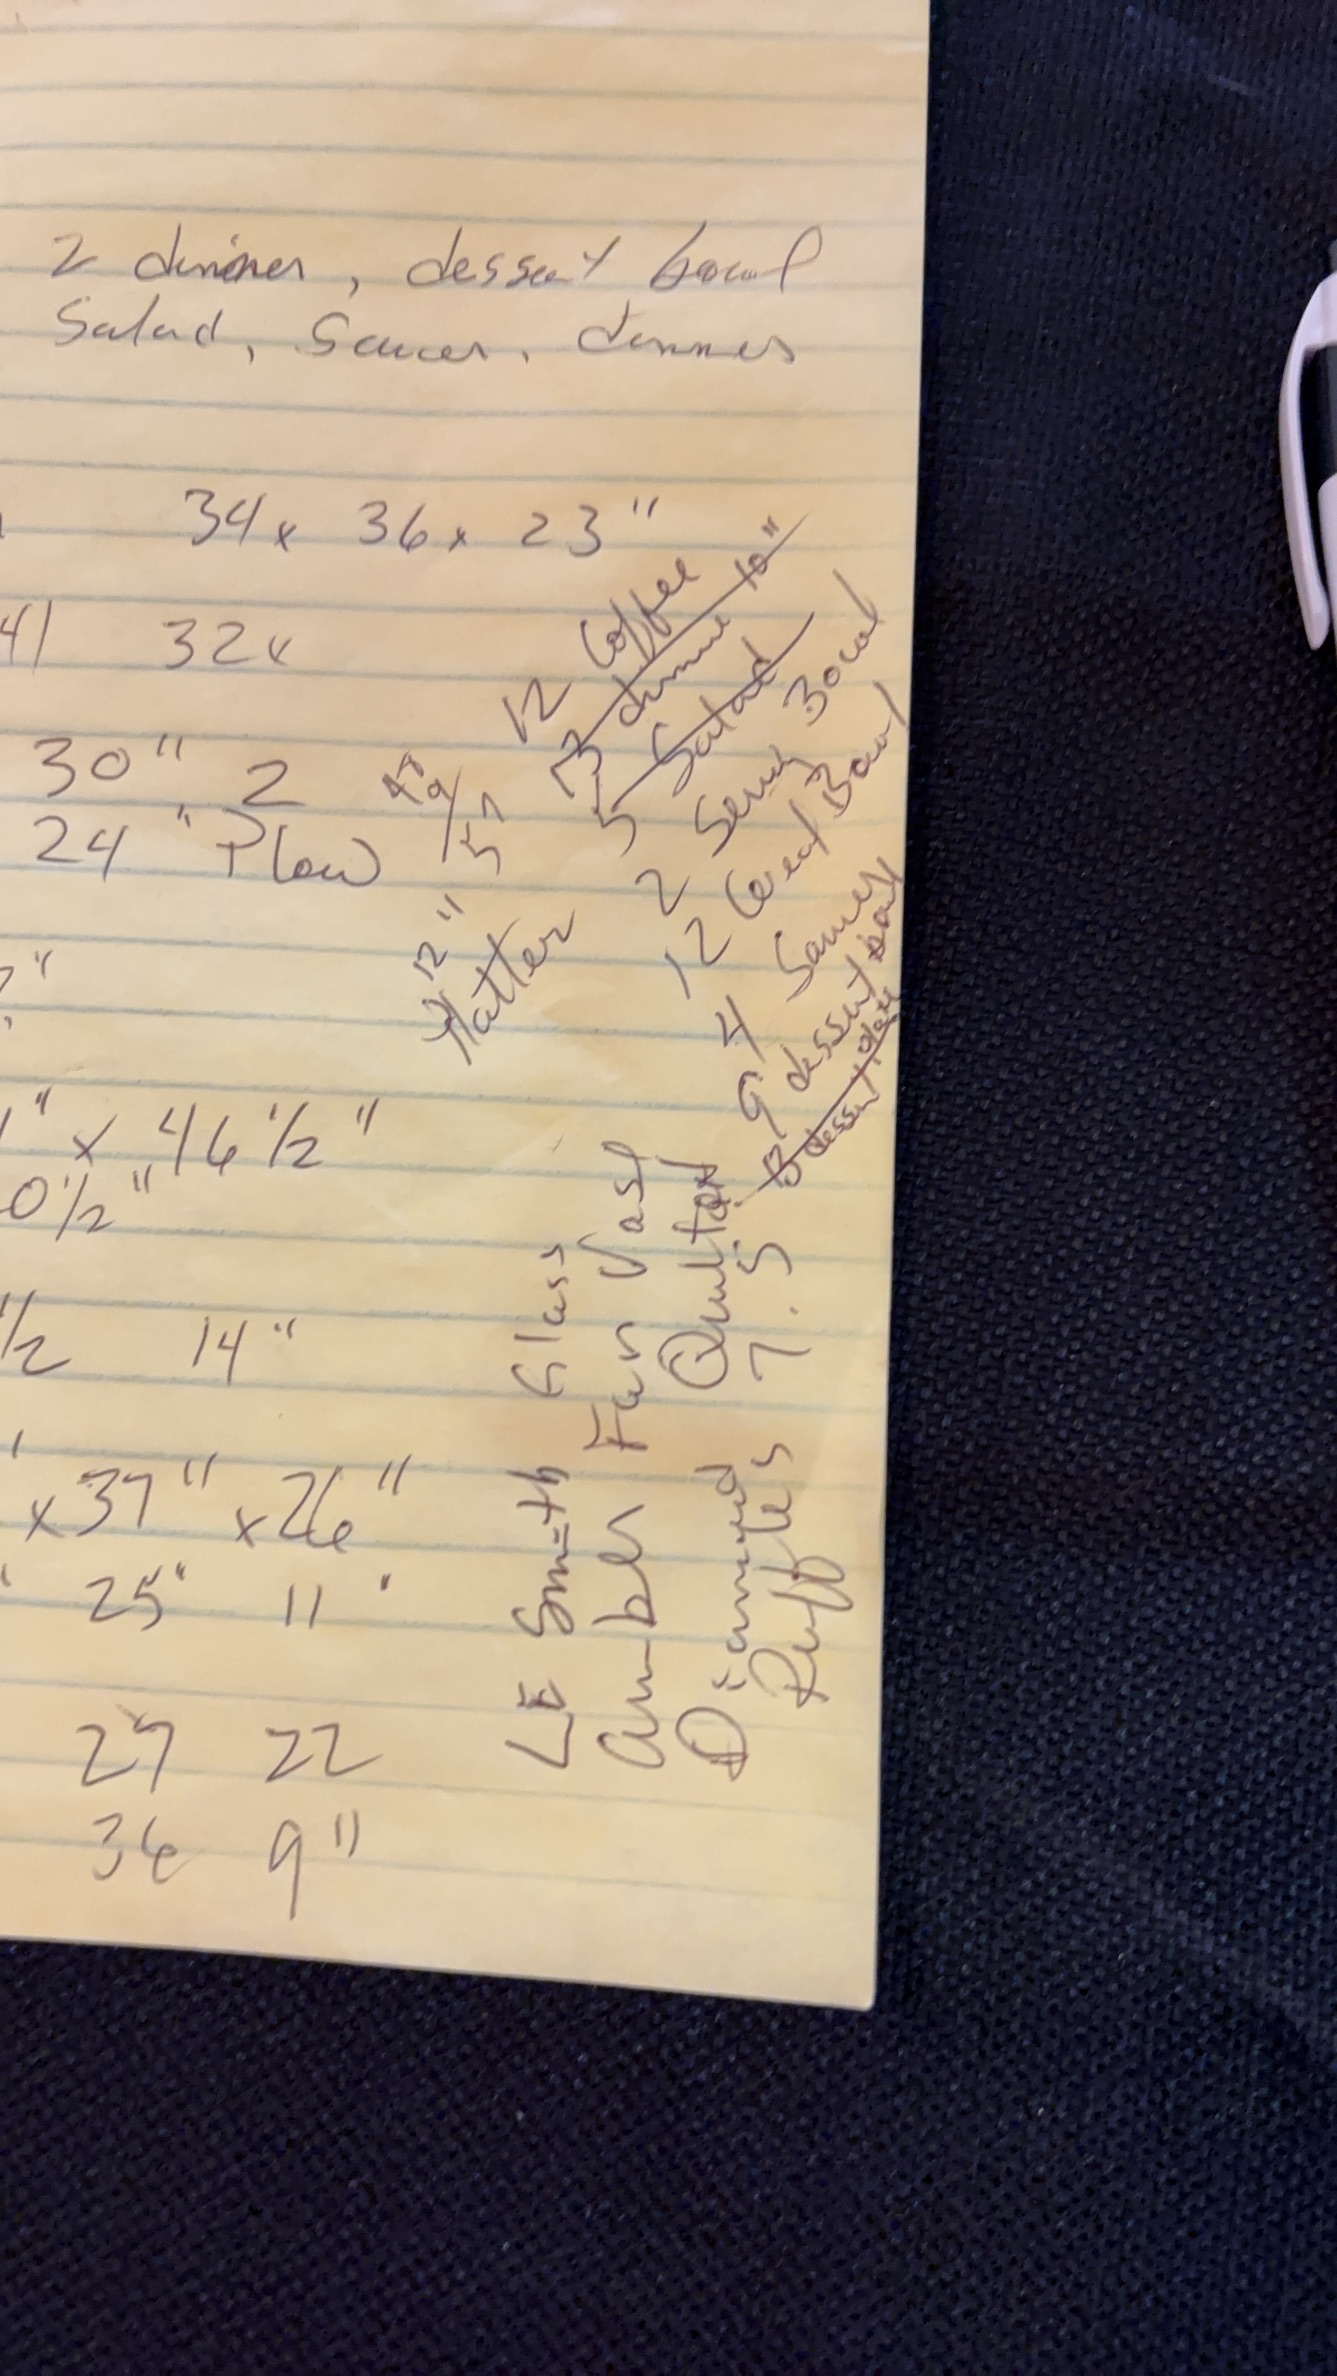 2 dinner, dessert bowl
Salad, Saucer, dinner
34 x 36 x 23"
41 32x
30" 2
24" Plow
" x 46 1/2"
0 1/2"
1/2 14"
x 37" x 26"
25" 11
27 22
36 9"
12 Coffee
dinner 10"
5 Salad
2 Serving Bowl
12 Cereal Bowl
4 Saucer
9 dessert bowl
dessert plate
12"
Platter
57
LE Smith Glass
Amber Fan Vase
Diamond Quilted
Ruffles 7.5